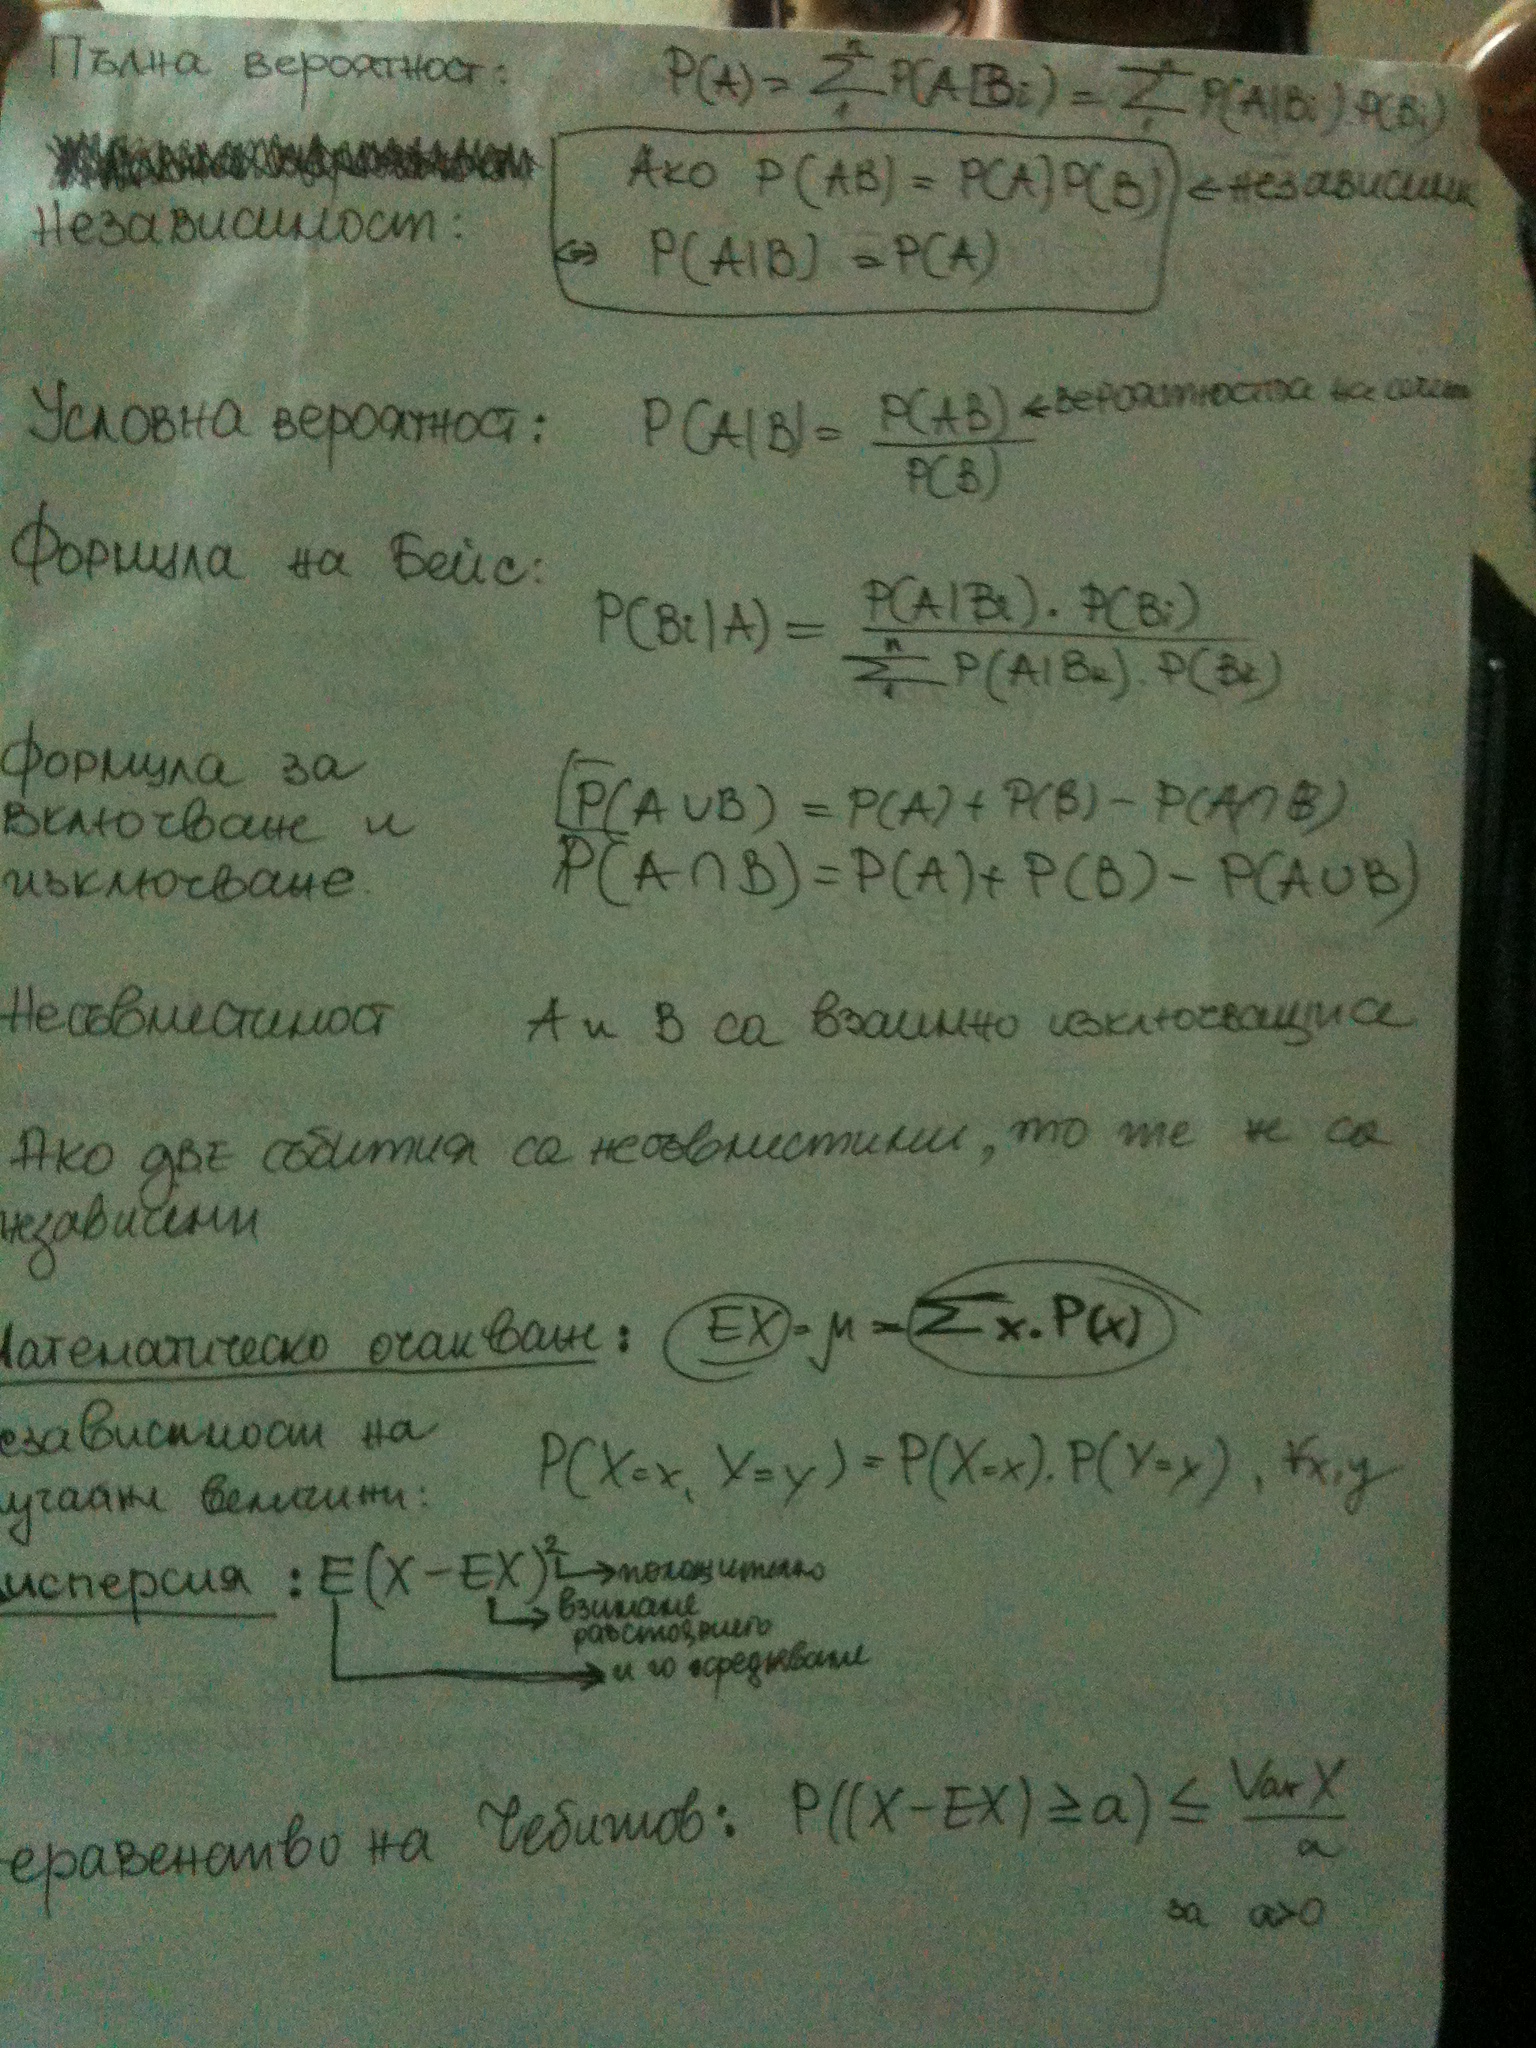 Пълна вероятност: P(A) = Σ₁ⁿ P(A|Bi) = Σ₁ⁿ P(A|Bi).P(Bi)
Независимост:
Ако P(AB) = P(A)P(B) ← независими
⇔ P(A|B) = P(A)
Условна вероятност: P(A|B) = P(AB)/P(B) ← вероятността на
Формула на Бейс:
P(Bi|A) = P(A|Bi).P(Bi) / Σ₁ⁿ P(A|Bk).P(Bk)
Формула за
включване и
изключване.
P(A∪B) = P(A) + P(B) − P(A∩B)
P(A∩B) = P(A) + P(B) − P(A∪B)
Несъвместимост А и В са взаимно изключващи се
Ако две събития са несъвместими, то те не са
независими
математическо очакване: EX = μ = Σ x.P(x)
езависимост на
учайни величини:
P(X=x, Y=y) = P(X=x).P(Y=y), ∀x,y
исперсия: E(X−EX)² → положително
взимаме
разстоянието
и го осредняваме
еравенство на Чебишов: P((X−EX) ≥ a) ≤ VarX/a
за a>0